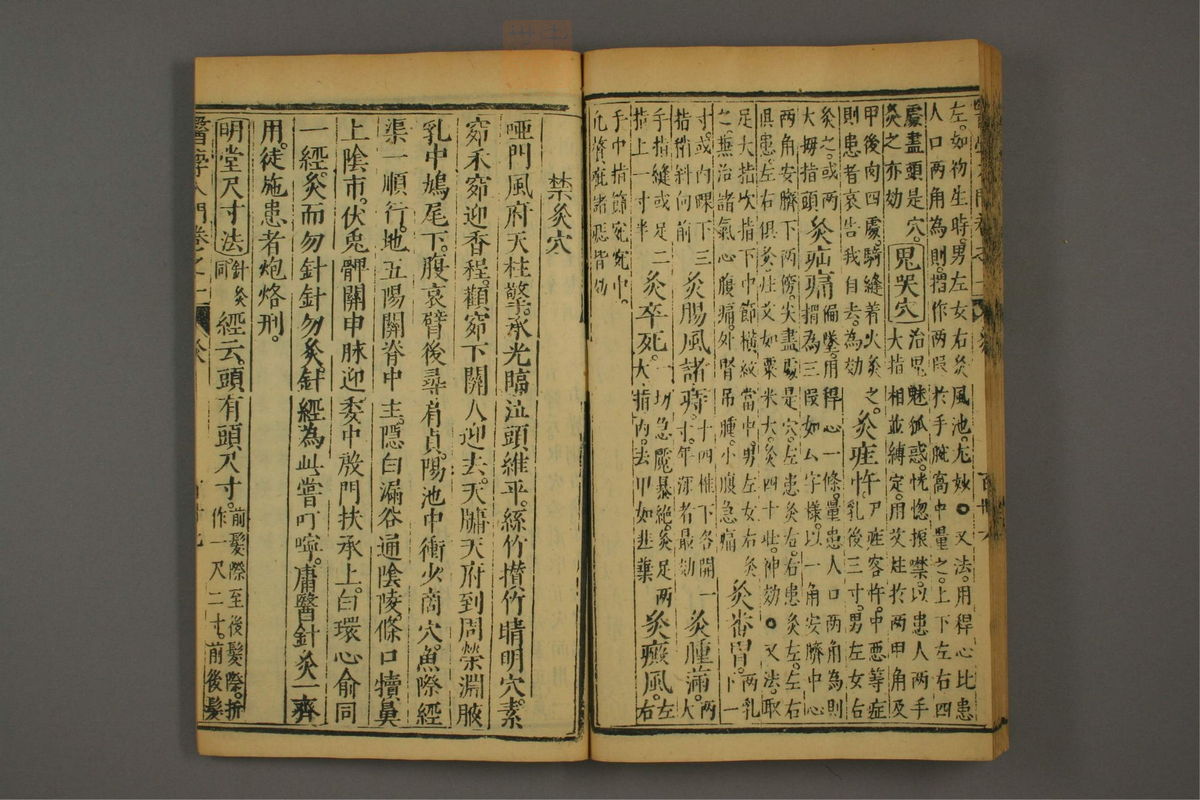 左。如物生時。男左女右灸風池。尤妙○又法。用稈心比患
人口兩角為則。摺作兩段於手腕窩中量之。上下左右四
處盡頭是穴。
灸之亦効
鬼哭穴
治鬼魅狐惑。恍惚振噤。以患人兩手
大指相並縛定。用艾炷於兩甲角及
甲後肉四處。騎縫着火灸之。
則患者哀告我自去。為効
灸疰忤
尸疰客忤。中惡等症
乳後三寸。男左女右
灸之。或兩
大拇指頭
灸疝痛
偏墜。用稈心一條。量患人口兩角為則
摺為三段如厶字樣。以一角安臍中心
兩角安臍下兩傍。尖盡處是穴。左患灸右。右患灸左。左右
俱患。左右俱灸炷艾如粟米大。灸四十壯。神効○又法。取
足大指次指下中節橫紋當中。男左女右灸
之。兼治諸氣心腹痛。外腎吊腫。小腹急痛
灸番胃。
兩乳
下一
寸。或內踝下三
指稍斜向前
灸腸風諸痔。
十四椎下各開一
寸。年深者最効
灸腫滿。
兩
大
手指縫或足二
指上一寸半
灸卒死。
一切急魘暴絕。灸足兩
大指內。去甲如韭葉
灸癜風。
左
右
手中指節宛宛中。
凡贅疣諸痣皆効
禁灸穴
啞門風府天柱擎。承光臨泣頭維平。絲竹攢竹睛明穴。素
窌禾窌迎香程。顴窌下關人迎去。天牖天府到周榮淵腋
乳中鳩尾下。腹哀臂後尋肩貞。陽池中衝少商穴。魚際經
渠一順行。地五陽關脊中主。隱白漏谷通陰陵。條口犢鼻
上陰市。伏兎髀關申脉迎委中殷門扶承上。白環心俞同
一經。灸而勿針針勿灸。針經為此嘗叮嚀。庸醫針灸一齊
用。徒施患者炮烙刑。
明堂尺寸法。
針灸
同
經云。頭有頭尺寸。
前髮際至後髮際。折
作一尺二寸。前後髮
醫學入門卷之一
灸